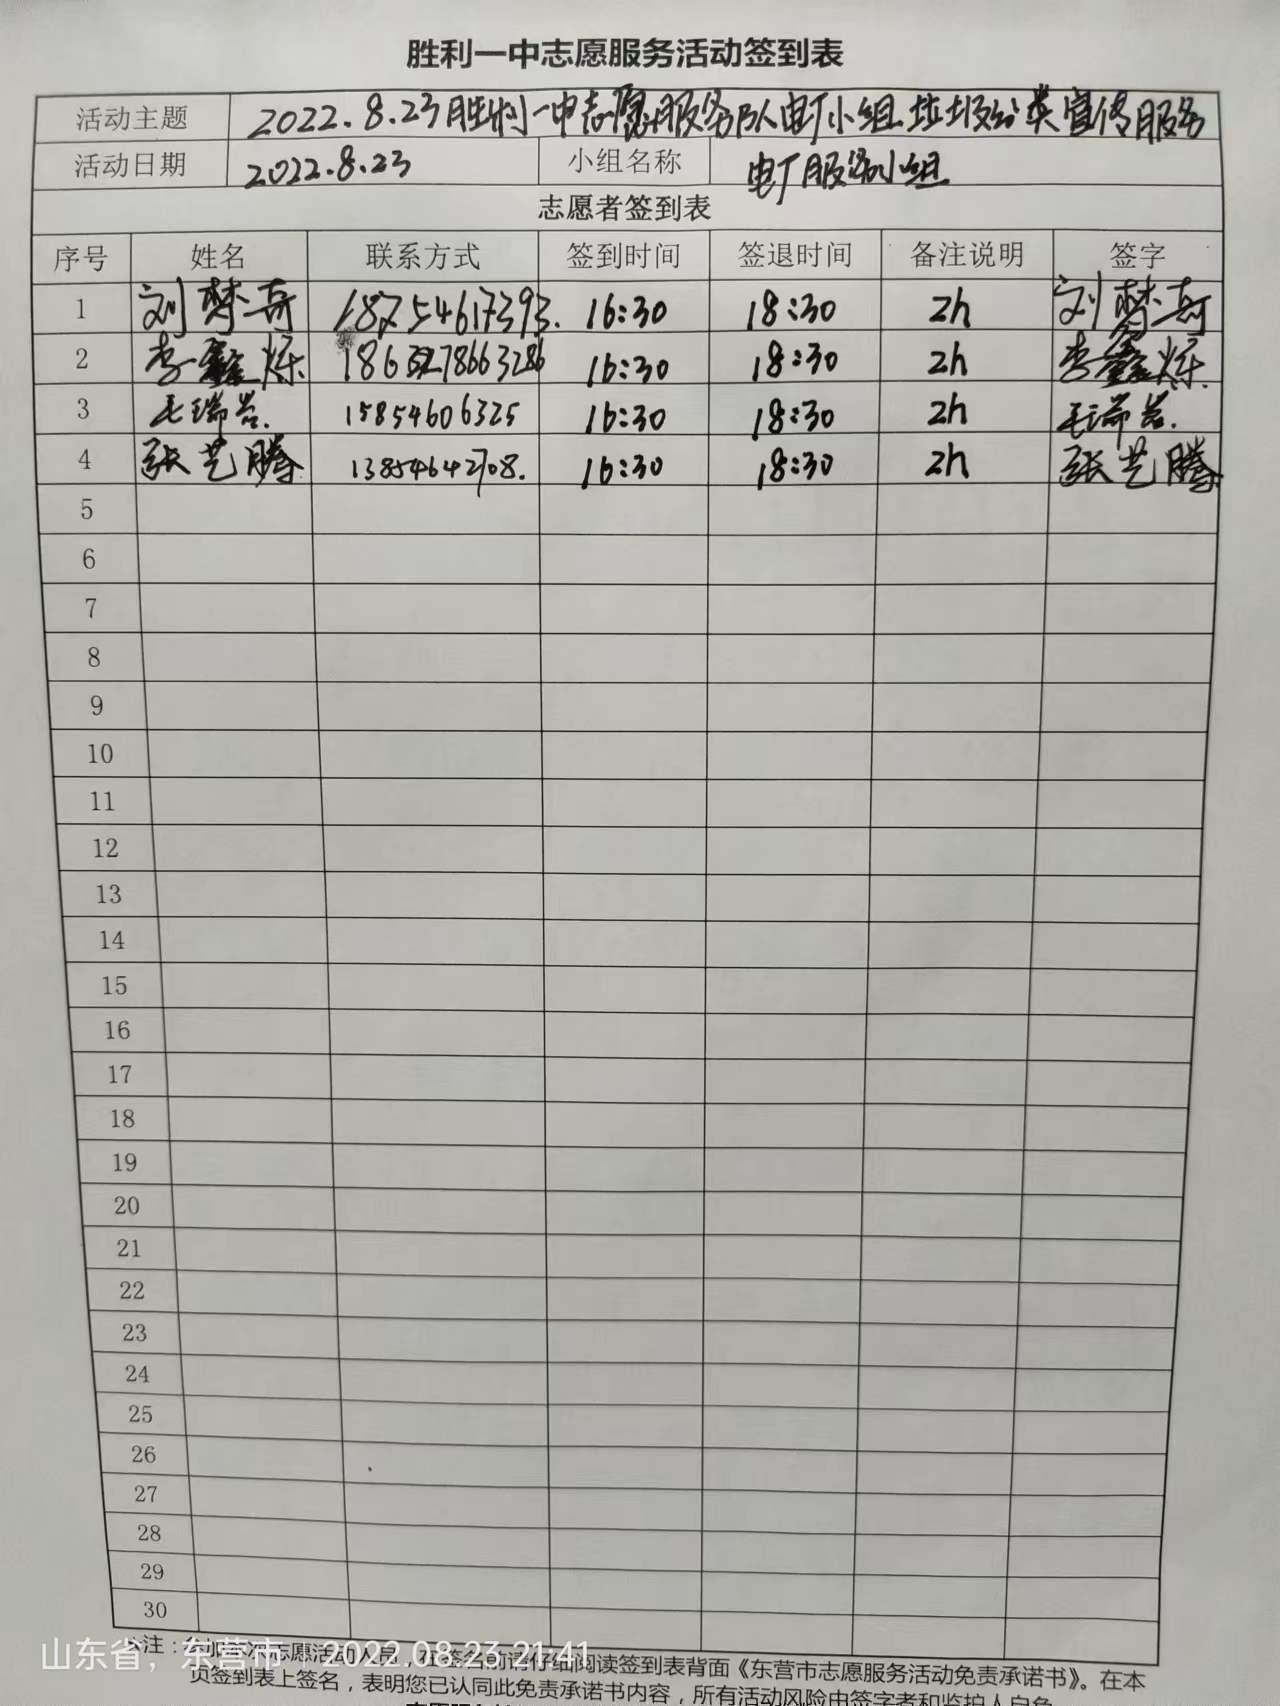 胜利一中志愿服务活动签到表
活动主题 2022.8.23胜利一中志愿服务队电厂小组垃圾分类宣传服务
活动日期 2022.8.23 小组名称 电厂服务小组
志愿者签到表
序号 姓名 联系方式 签到时间 签退时间 备注说明 签字
1 刘梦奇 18754617393. 16:30 18:30 2h 刘梦奇
2 李鑫烁 16:30 18:30 2h 李鑫烁.
3 毛瑞岩. 15854606325 16:30 18:30 2h 毛瑞岩.
4 张艺腾 13854642708. 16:30 18:30 2h 张艺腾
5
6
7
8
9
10
11
12
13
14
15
16
17
18
19
20
21
22
23
24
25
26
27
28
29
30
备注：参加本次志愿活动人员，在签名前请仔细阅读签到表背面《东营市志愿服务活动免责承诺书》。在本
页签到表上签名，表明您已认同此免责承诺书内容，所有活动风险由签字者和监护人自负
山东省，东营市 | 2022.08.23 21:41